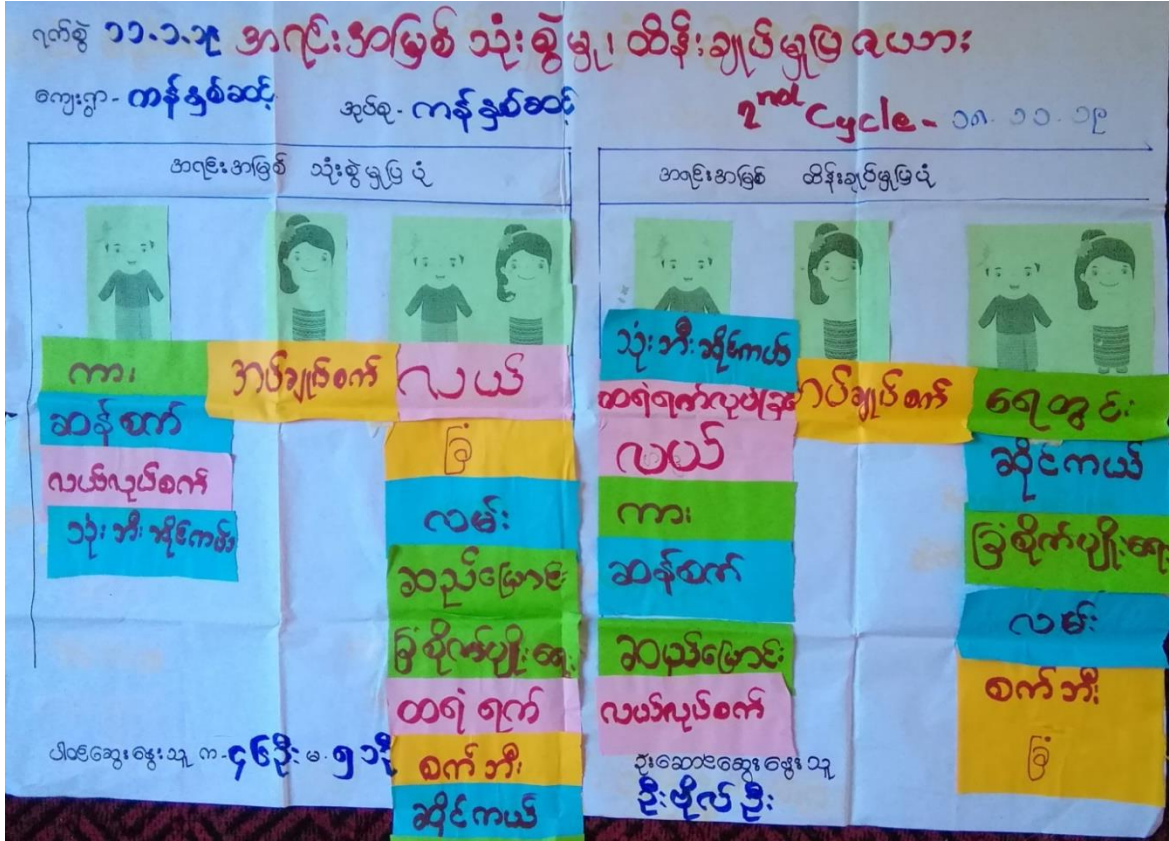 ရက်စွဲ ၁၁.၁.၁၉ အရင်းအမြစ် သုံးစွဲမှု၊ ထိန်းချုပ်မှုပြ ဇယား
ကျေးရွာ - ကန်နှစ်ဆင့် အုပ်စု - ကန်နှစ်ဆင့် 2nd Cycle - ၁၈.၁၁.၁၉
အရင်းအမြစ် သုံးစွဲမှုပြပုံ
ကား
ဆန်စက်
လယ်လုပ်စက်
သုံးဘီးဆိုင်ကယ်
အပ်ချုပ်စက်
လယ်
ခြံ
လမ်း
ဆည်မြောင်း
ခြံစိုက်ပျိုးရေး
ထရံရက်
စက်ဘီး
ဆိုင်ကယ်
ပါဝင်ဆွေးနွေးသူ ကျ - ၄၆ဦး မ - ၅၁ဦး
အရင်းအမြစ် ထိန်းချုပ်မှုပြပုံ
သုံးဘီးဆိုင်ကယ်
ထရံရက်လုပ်ခြင်း
လယ်
ကား
ဆန်စက်
ဆည်မြောင်း
လယ်လုပ်စက်
အပ်ချုပ်စက်
ရေတွင်း
ဆိုင်ကယ်
ခြံစိုက်ပျိုးရေး
လမ်း
စက်ဘီး
ခြံ
ဦးဆောင်ဆွေးနွေးသူ
ဦးဗိုလ်ဦး